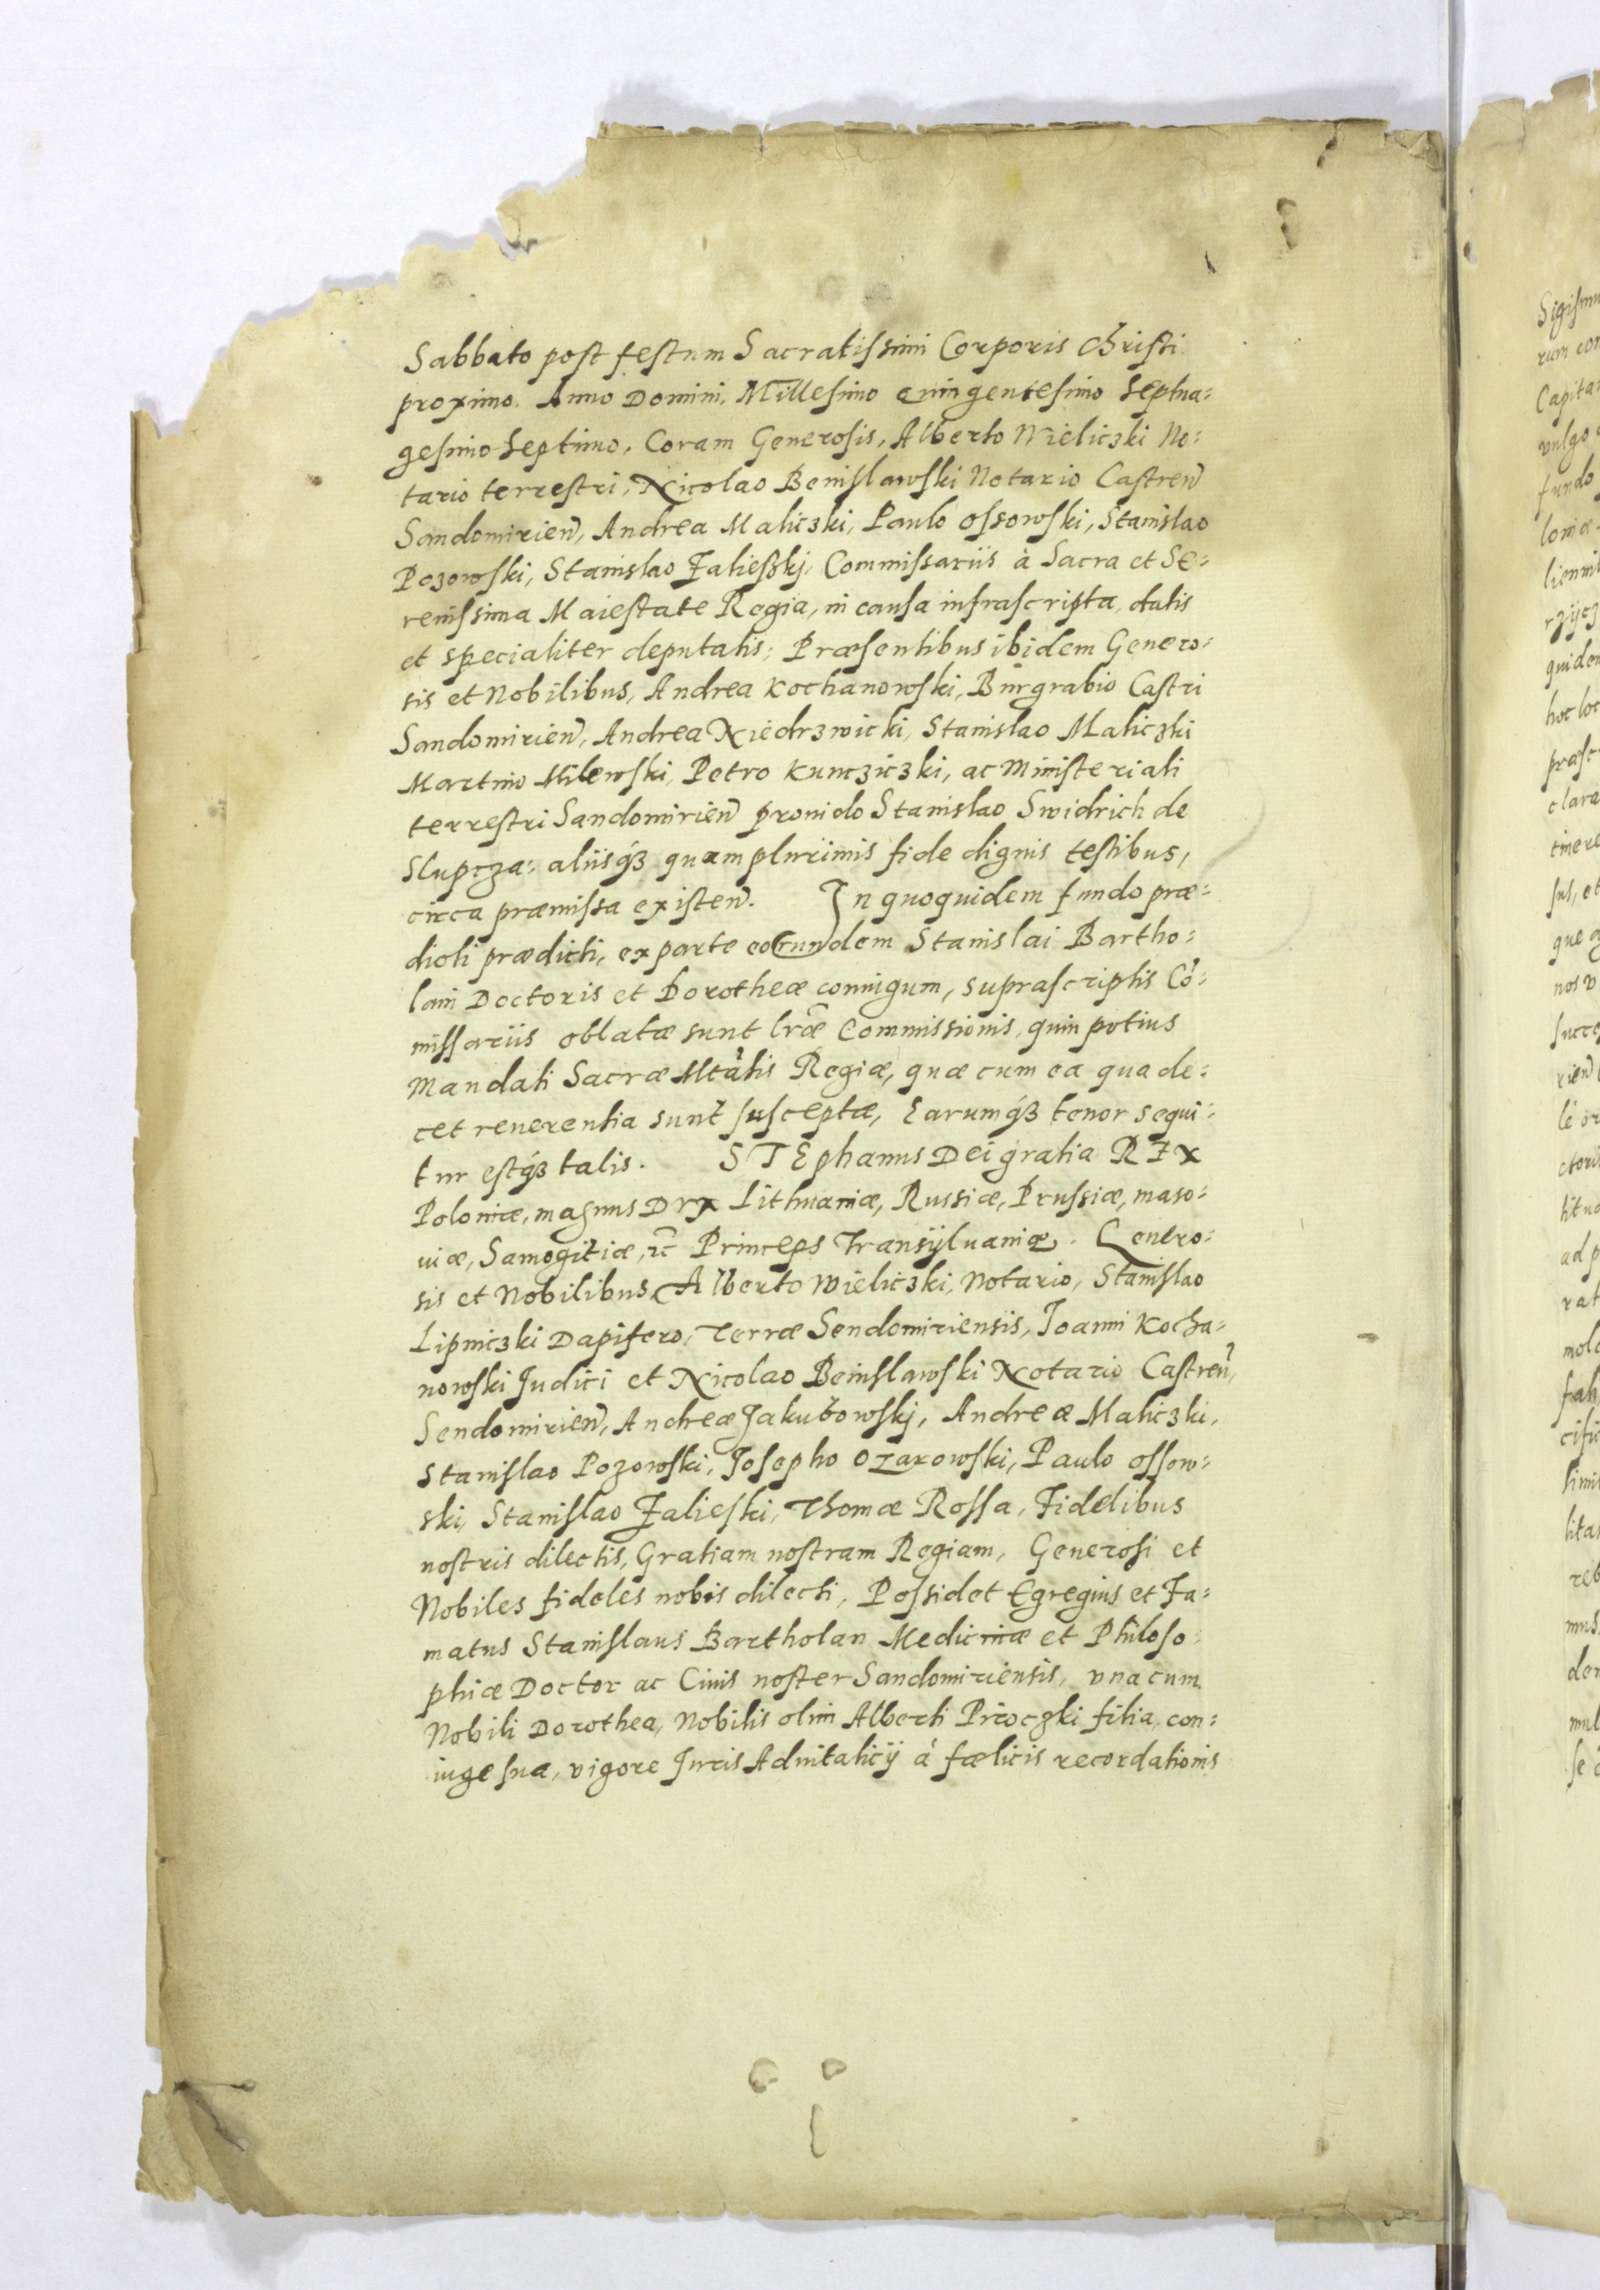 Sabbato post festum Sacratissimi Corporis Christi
proximo. Anno Domini, Millesimo Quingentesimo Septua=
gesimo Septimo, Coram Generosis, Alberto Wieliczki No=
tario terrestri, Nicolao Beinislawski Notario Castren̄
Sandomirien̄, Andrea Maliczki, Paulo Ossowski, Stanislao
Pozowski, Stanislao Falieszkj, Commissariis à Sacra et Se=
renissima Maiestate Regia, in causa infrascripta, datis
et specialiter deputatis; Præsentibus ibidem Genero=
sis et Nobilibus, Andrea Kochanowski, Burgrabio Castri
Sandomirien̄, Andrea Niedrzwicki, Stanislao Maliczki
Martino Milewski, Petro Kuncziczki, ac Ministeriali
terrestri Sandomirien̄ prouido Stanislao Swidrich de
Slupcza: aliisq́ꝫ quam plurimis fide dignis testibus,
circa præmissa existen̄. In quoquidem fundo præ=
dioli prædicti, ex parte eorundem Stanislai Bartho=
lain Doctoris et Dorotheæ coniugum, suprascriptis Cō=
missariis oblatæ sunt lr̄æ Commissionis, quin potius
Mandati Sacræ Mtātis Regiæ, quæ cum ea qua de=
cet reuerentia sunt susceptæ, Earumq́ꝫ tenor sequi=
tur estq́ꝫ talis. STEphanus Dei gratia REx
Poloniæ, magnus Dux Lithuaniæ, Russiæ, Prussiæ, maso=
uiæ, Samogitiæ, ꝛc̄ Princeps Transÿluaniæ. Genero=
sis et Nobilibus, Alberto Wieliczki, Notario, Stanislao
Lipniczki Dapifero, Terræ Sendomiriensis, Joanni Kocha=
nowski Judici et Nicolao Beinislawski Notario Castren̄,
Sendomirien̄, Andreæ Jakubowskj, Andreæ Maliczki,
Stanislao Pozowski, Josepho Ozarowski, Paulo Ossow=
ski, Stanislao Falieski, Thomæ Rossa, Fidelibus
nostris dilectis, Gratiam nostram Regiam, Generosi et
Nobiles fideles nobis dilecti, Possidet Egregius et Fa=
matus Stanislaus Bartholan Medicinæ et Philoso=
phiæ Doctor ac Ciuis noster Sandomiriensis, vna cum
Nobili Dorothea, Nobilis olim Alberti filia, con=
iuge sua, vigore Juris Aduitalicij á fælicis recordationis